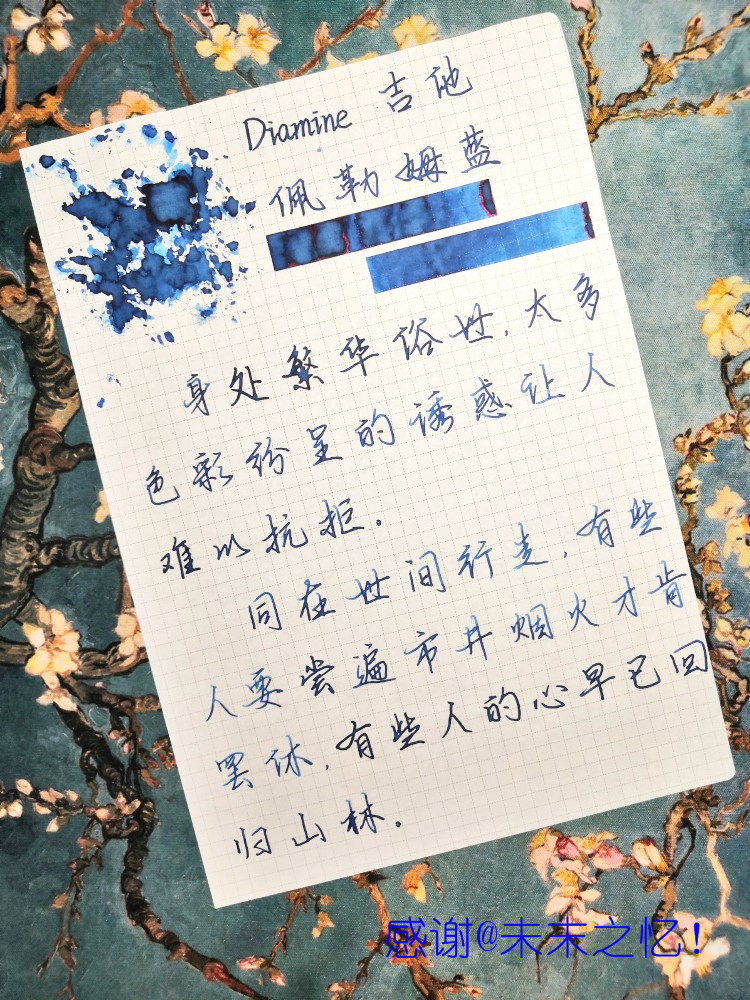 Diamine 吉他
佩勒姆蓝
身处繁华俗世，太多
色彩纷呈的诱惑让人
难以抗拒。
同在世间行走，有些
人要尝遍市井烟火才肯
罢休，有些人的心早已回
归山林。
感谢@未末之忆！